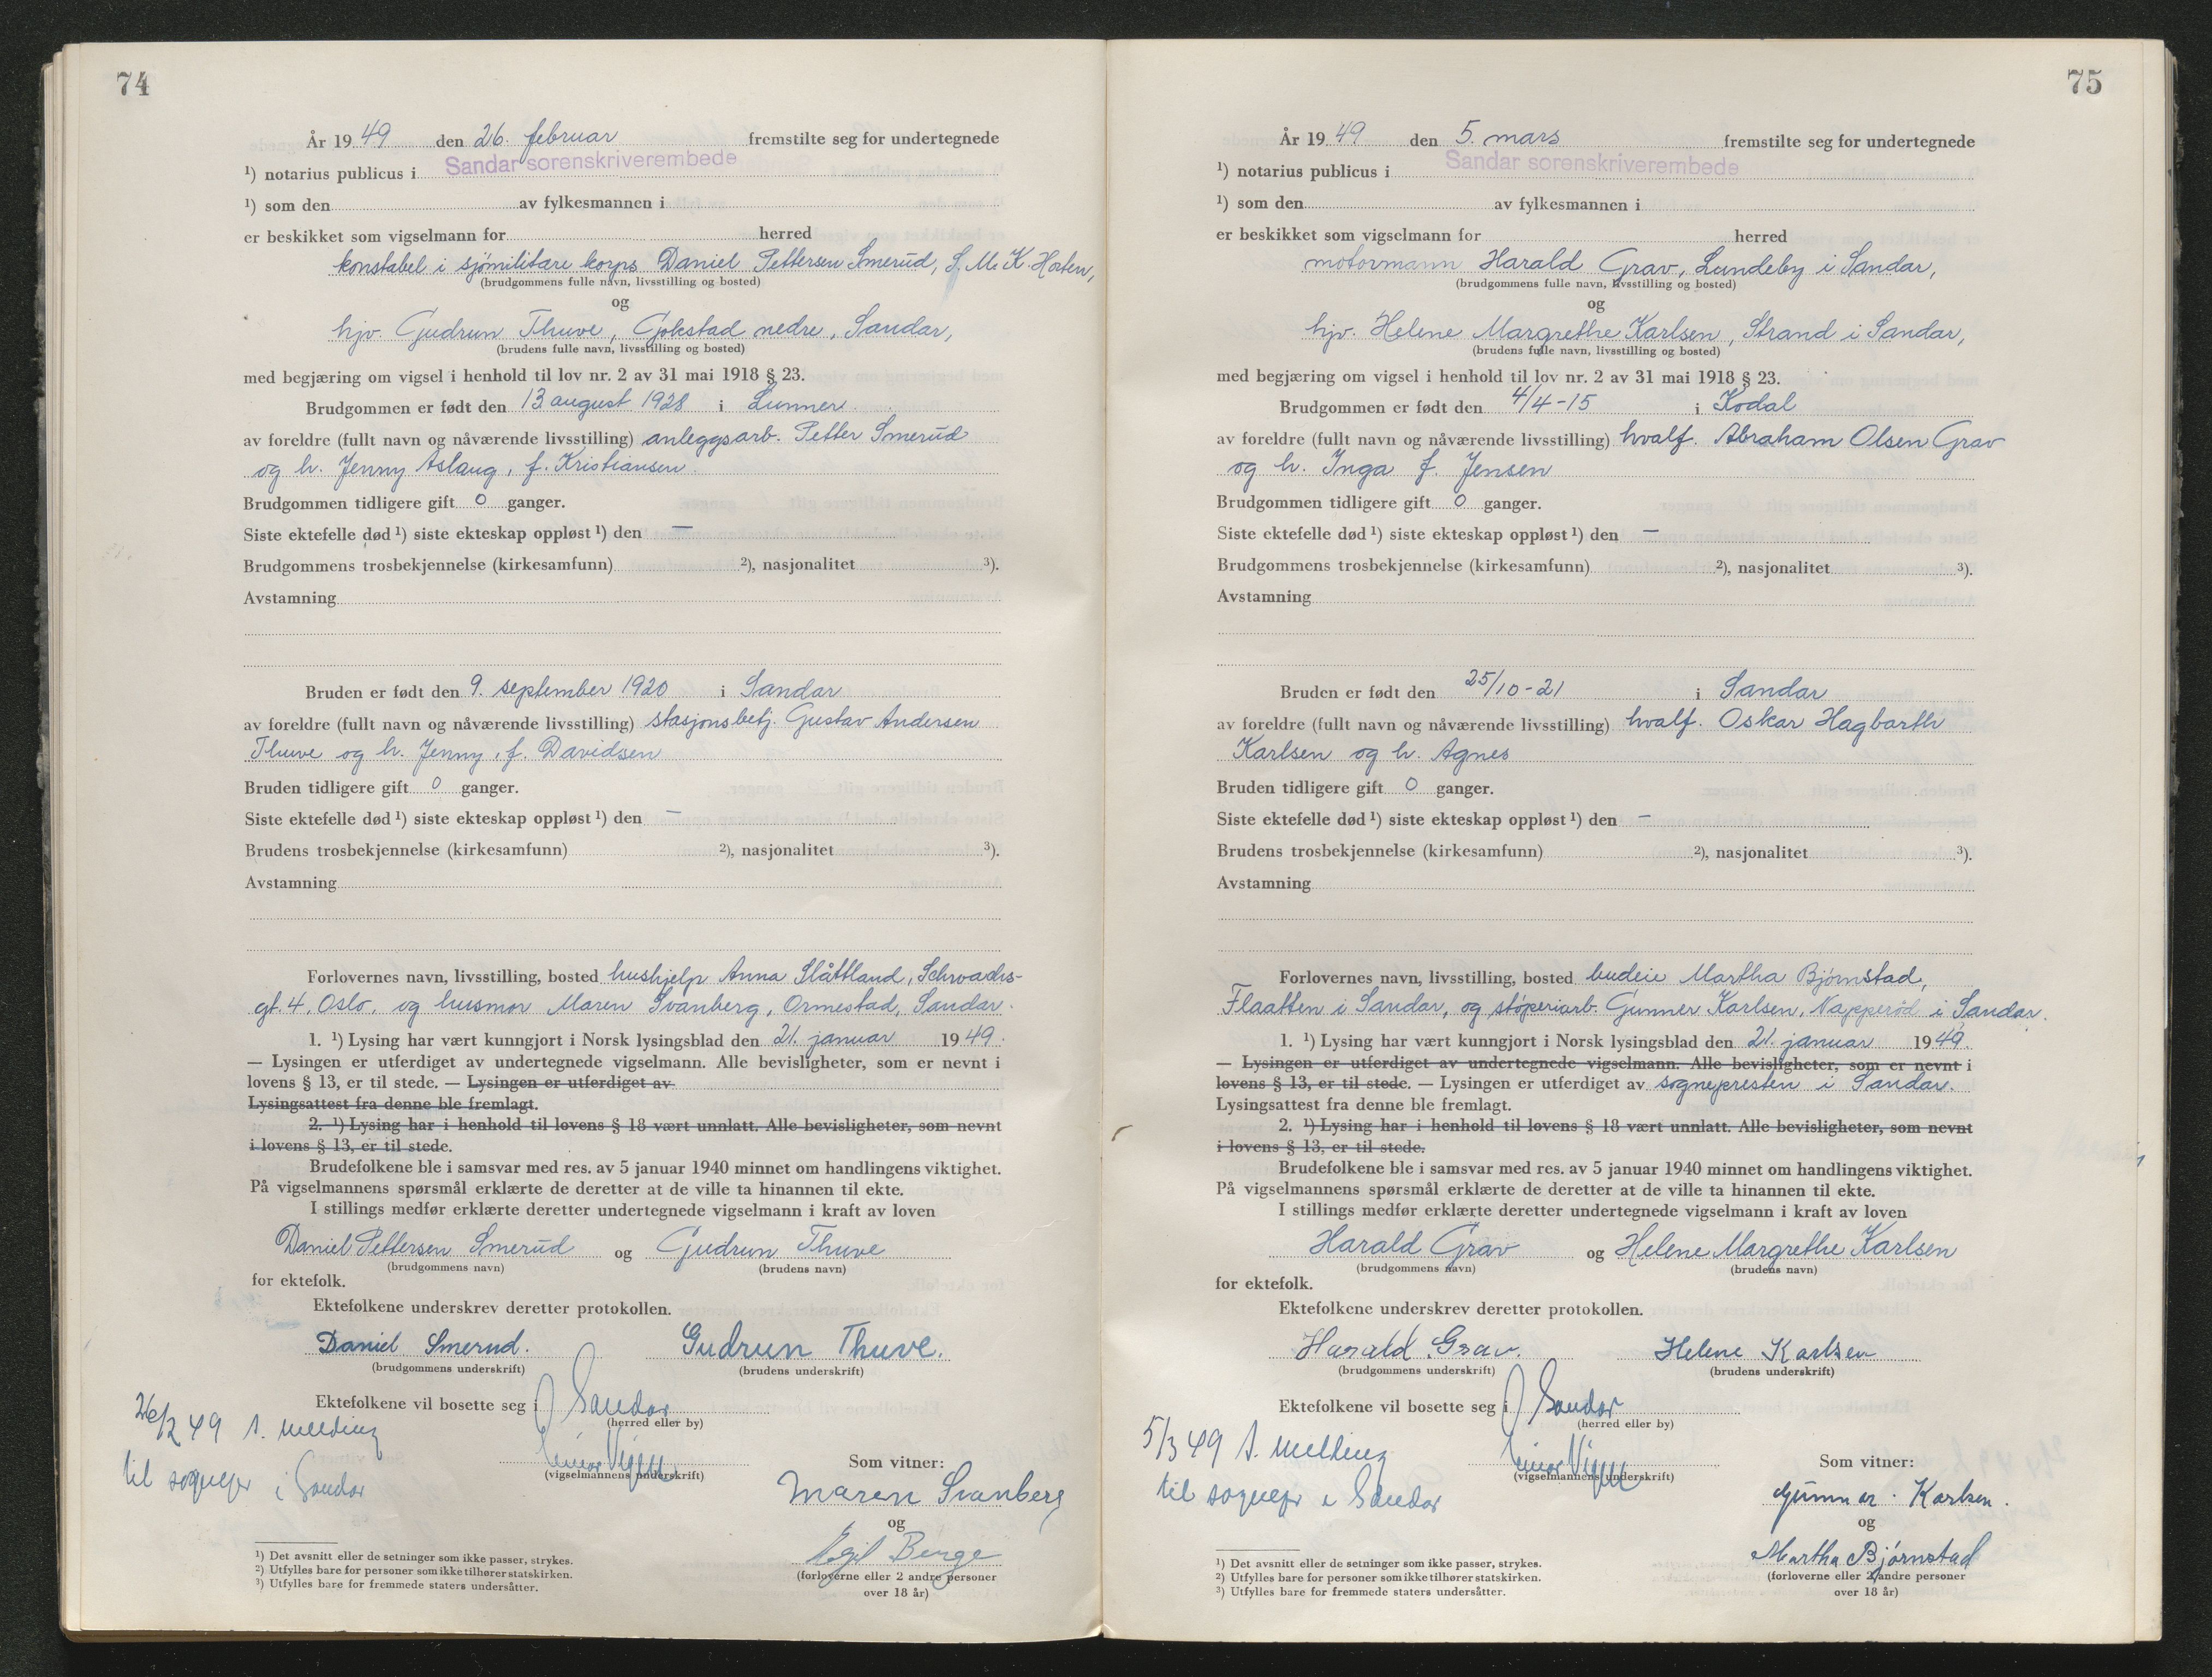 74
År 19 49 den 26. februar fremstilte seg for undertegnede
¹) notarius publicus i Sandar sorenskriverembede
¹) som den av fylkesmannen i
er beskikket som vigselmann for herred
konstabel i sjømilitære korps Daniel Pettersen Smerud, S.M.K. Horten,
(brudgommens fulle navn, livsstilling og bosted)
og
hjv. Gudrun Thuve, Gokstad nedre, Sandar,
(brudens fulle navn, livsstilling og bosted)
med begjæring om vigsel i henhold til lov nr. 2 av 31 mai 1918 § 23.
Brudgommen er født den 13 august 1928 i Lunner
av foreldre (fullt navn og nåværende livsstilling) anleggsarb. Petter Smerud
og h. Jenny Aslaug, f. Kristiansen
Brudgommen tidligere gift 0 ganger.
Siste ektefelle død ¹) siste ekteskap oppløst ¹) den —
Brudgommens trosbekjennelse (kirkesamfunn) ²), nasjonalitet ³).
Avstamning
Bruden er født den 9. september 1920 i Sandar
av foreldre (fullt navn og nåværende livsstilling) stasjonsbetj. Gustav Andersen
Thuve og h. Jenny, f. Davidsen
Bruden tidligere gift 0 ganger.
Siste ektefelle død ¹) siste ekteskap oppløst ¹) den —
Brudens trosbekjennelse (kirkesamfunn) ²), nasjonalitet ³).
Avstamning
Forlovernes navn, livsstilling, bosted hushjelp Anna Slåttland,
gt. 4, Oslo, og husmor Maren Svanberg, Ormestad, Sandar.
1. ¹) Lysing har vært kunngjort i Norsk lysingsblad den 21. januar 19 49.
— Lysingen er utferdiget av undertegnede vigselmann. Alle bevisligheter, som er nevnt i
lovens § 13, er til stede. — Lysingen er utferdiget av
Lysingsattest fra denne ble fremlagt.
2. ¹) Lysing har i henhold til lovens § 18 vært unnlatt. Alle bevisligheter, som nevnt
i lovens § 13, er til stede.
Brudefolkene ble i samsvar med res. av 5 januar 1940 minnet om handlingens viktighet.
På vigselmannens spørsmål erklærte de deretter at de ville ta hinannen til ekte.
I stillings medfør erklærte deretter undertegnede vigselmann i kraft av loven
Daniel Pettersen Smerud og Gudrun Thuve
(brudgommens navn) (brudens navn)
for ektefolk.
Ektefolkene underskrev deretter protokollen.
Daniel Smerud. Gudrun Thuve.
(brudgommens underskrift) (brudens underskrift)
Ektefolkene vil bosette seg i Sandar
(herred eller by)
26/2 49 s. melding
til sognepr i Sandar
(vigselmannens underskrift)
Som vitner:
Maren Svanberg
og
Egil Berge
(forloverne eller 2 andre personer
over 18 år)
¹) Det avsnitt eller de setninger som ikke passer, strykes.
²) Utfylles bare for personer som ikke tilhører statskirken.
³) Utfylles bare for fremmede staters undersåtter.
75
År 19 49 den 5. mars fremstilte seg for undertegnede
¹) notarius publicus i Sandar sorenskriverembede
¹) som den av fylkesmannen i
er beskikket som vigselmann for herred
motormann Harald Grav, Lundeby i Sandar,
(brudgommens fulle navn, livsstilling og bosted)
og
hjv. Helene Margrethe Karlsen, Strand i Sandar,
(brudens fulle navn, livsstilling og bosted)
med begjæring om vigsel i henhold til lov nr. 2 av 31 mai 1918 § 23.
Brudgommen er født den 4/4-15 i Kodal
av foreldre (fullt navn og nåværende livsstilling) hvalf. Abraham Olsen Grav
og h. Inga f. Jensen
Brudgommen tidligere gift 0 ganger.
Siste ektefelle død ¹) siste ekteskap oppløst ¹) den —
Brudgommens trosbekjennelse (kirkesamfunn) ²), nasjonalitet ³).
Avstamning
Bruden er født den 25/10-21 i Sandar
av foreldre (fullt navn og nåværende livsstilling) hvalf. Oskar Hagbarth
Karlsen og h. Agnes
Bruden tidligere gift 0 ganger.
Siste ektefelle død ¹) siste ekteskap oppløst ¹) den —
Brudens trosbekjennelse (kirkesamfunn) ²), nasjonalitet ³).
Avstamning
Forlovernes navn, livsstilling, bosted budeie Martha Bjørnstad,
Flaatten i Sandar, og støperiarb. Gunnar Karlsen, Napperød i Sandar.
1. ¹) Lysing har vært kunngjort i Norsk lysingsblad den 21. januar 19 49.
— Lysingen er utferdiget av undertegnede vigselmann. Alle bevisligheter, som er nevnt i
lovens § 13, er til stede. — Lysingen er utferdiget av sognepresten i Sandar.
Lysingsattest fra denne ble fremlagt.
2. ¹) Lysing har i henhold til lovens § 18 vært unnlatt. Alle bevisligheter, som nevnt
i lovens § 13, er til stede.
Brudefolkene ble i samsvar med res. av 5 januar 1940 minnet om handlingens viktighet.
På vigselmannens spørsmål erklærte de deretter at de ville ta hinannen til ekte.
I stillings medfør erklærte deretter undertegnede vigselmann i kraft av loven
Harald Grav og Helene Margrethe Karlsen
(brudgommens navn) (brudens navn)
for ektefolk.
Ektefolkene underskrev deretter protokollen.
Harald Grav. Helene Karlsen
(brudgommens underskrift) (brudens underskrift)
Ektefolkene vil bosette seg i Sandar
(herred eller by)
5/3 49 s. melding
til sognepr i Sandar
(vigselmannens underskrift)
Som vitner:
Gunnar Karlsen.
og
Martha Bjørnstad
(forloverne eller 2 andre personer
over 18 år)
¹) Det avsnitt eller de setninger som ikke passer, strykes.
²) Utfylles bare for personer som ikke tilhører statskirken.
³) Utfylles bare for fremmede staters undersåtter.